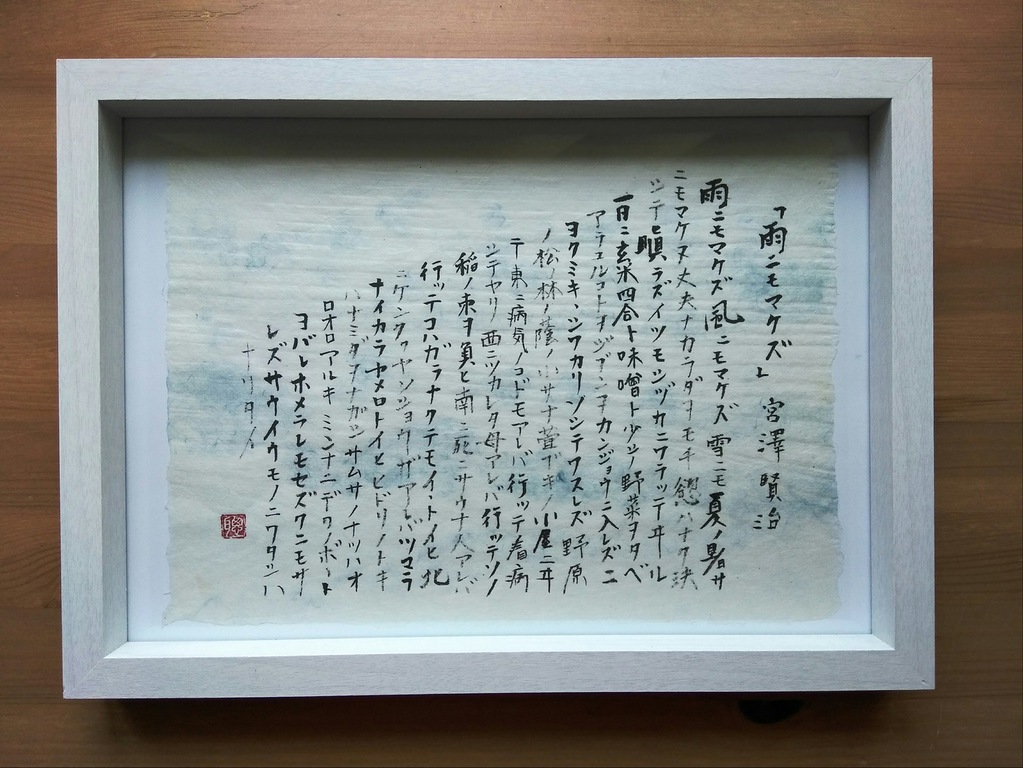 「雨ニモマケズ」 宮澤賢治
雨ニモマケズ風ニモマケズ雪ニモ夏ノ暑サ
ニモマケヌ丈夫ナカラダヲモチ慾ハナク決
シテ瞋ラズイツモシヅカニワラッテヰル
一日ニ玄米四合ト味噌ト少シノ野菜ヲタベ
アラユルコトヲジブンヲカンジョウニ入レズニ
ヨクミキヽシワカリソシテワスレズ野原
ノ松ノ林ノ蔭ノ小サナ萱ブキノ小屋ニヰ
テ東ニ病気ノコドモアレバ行ッテ看病
シテヤリ西ニツカレタ母アレバ行ッテソノ
稲ノ束ヲ負ヒ南ニ死ニサウナ人アレバ
行ッテコハガラナクテモイヽトイヒ北
ニケンクヮヤソショウガアレバツマラ
ナイカラヤメロトイヒヒドリノトキ
ハナミダヲナガシサムサノナツハオ
ロオロアルキミンナニデクノボート
ヨバレホメラレモセズクニモサ
レズサウイウモノニワタシハ
ナリタイ